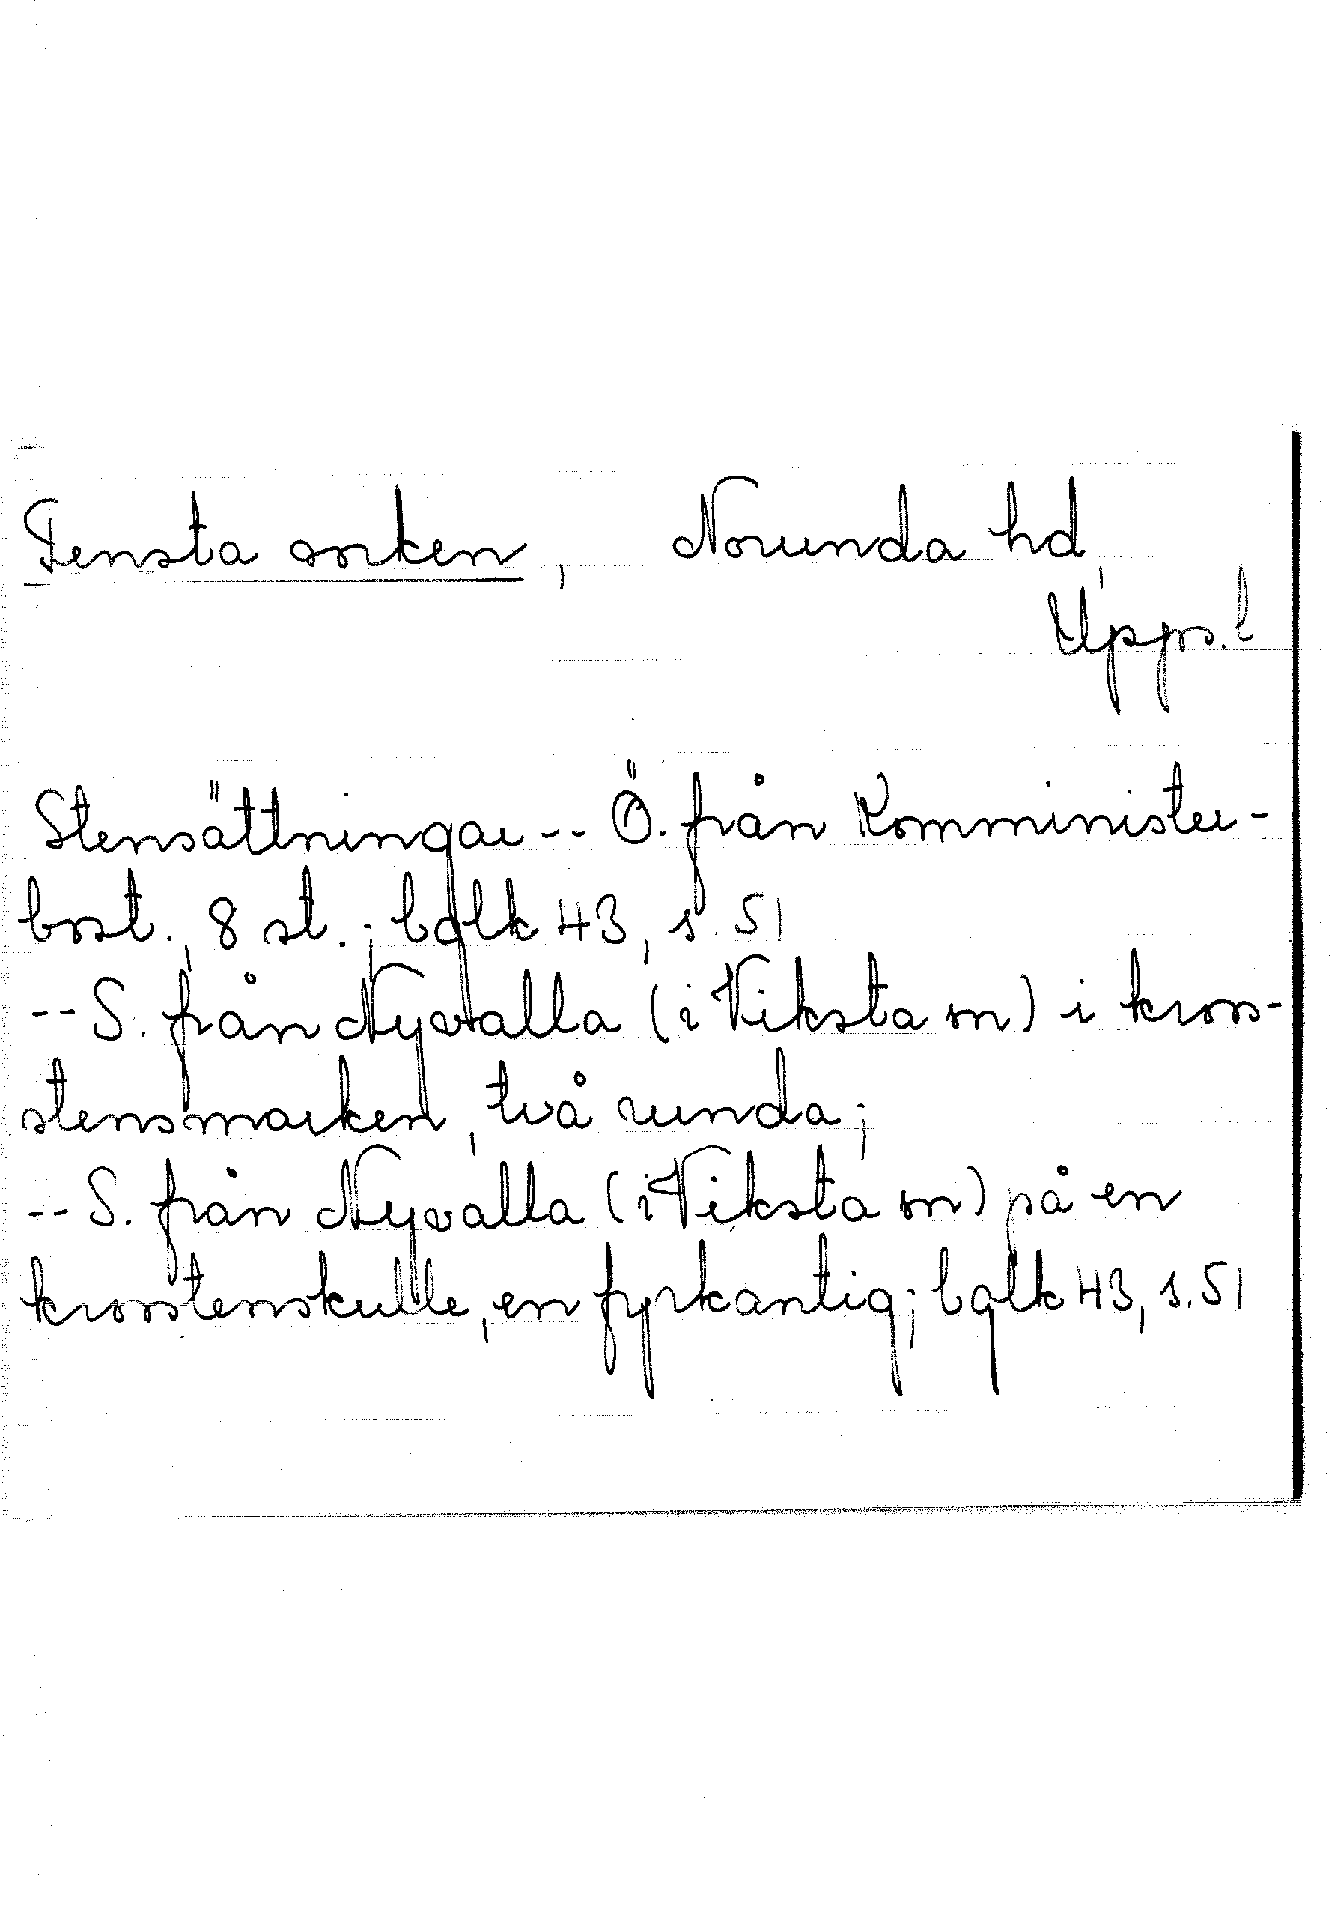 Tensta socken, Norunda hd,
Upps. l
Stensättningar -- Ö. från Komminister-
bost., 8 st.; bglk 43, s. 51
-- S. från Nyvalla (i Viksta sn) i kross-
stensmarken, två runda;
-- S. från Nyvalla (i Viksta sn) på en
krosstenskulle, en fyrkantig; bglk 43, s. 51